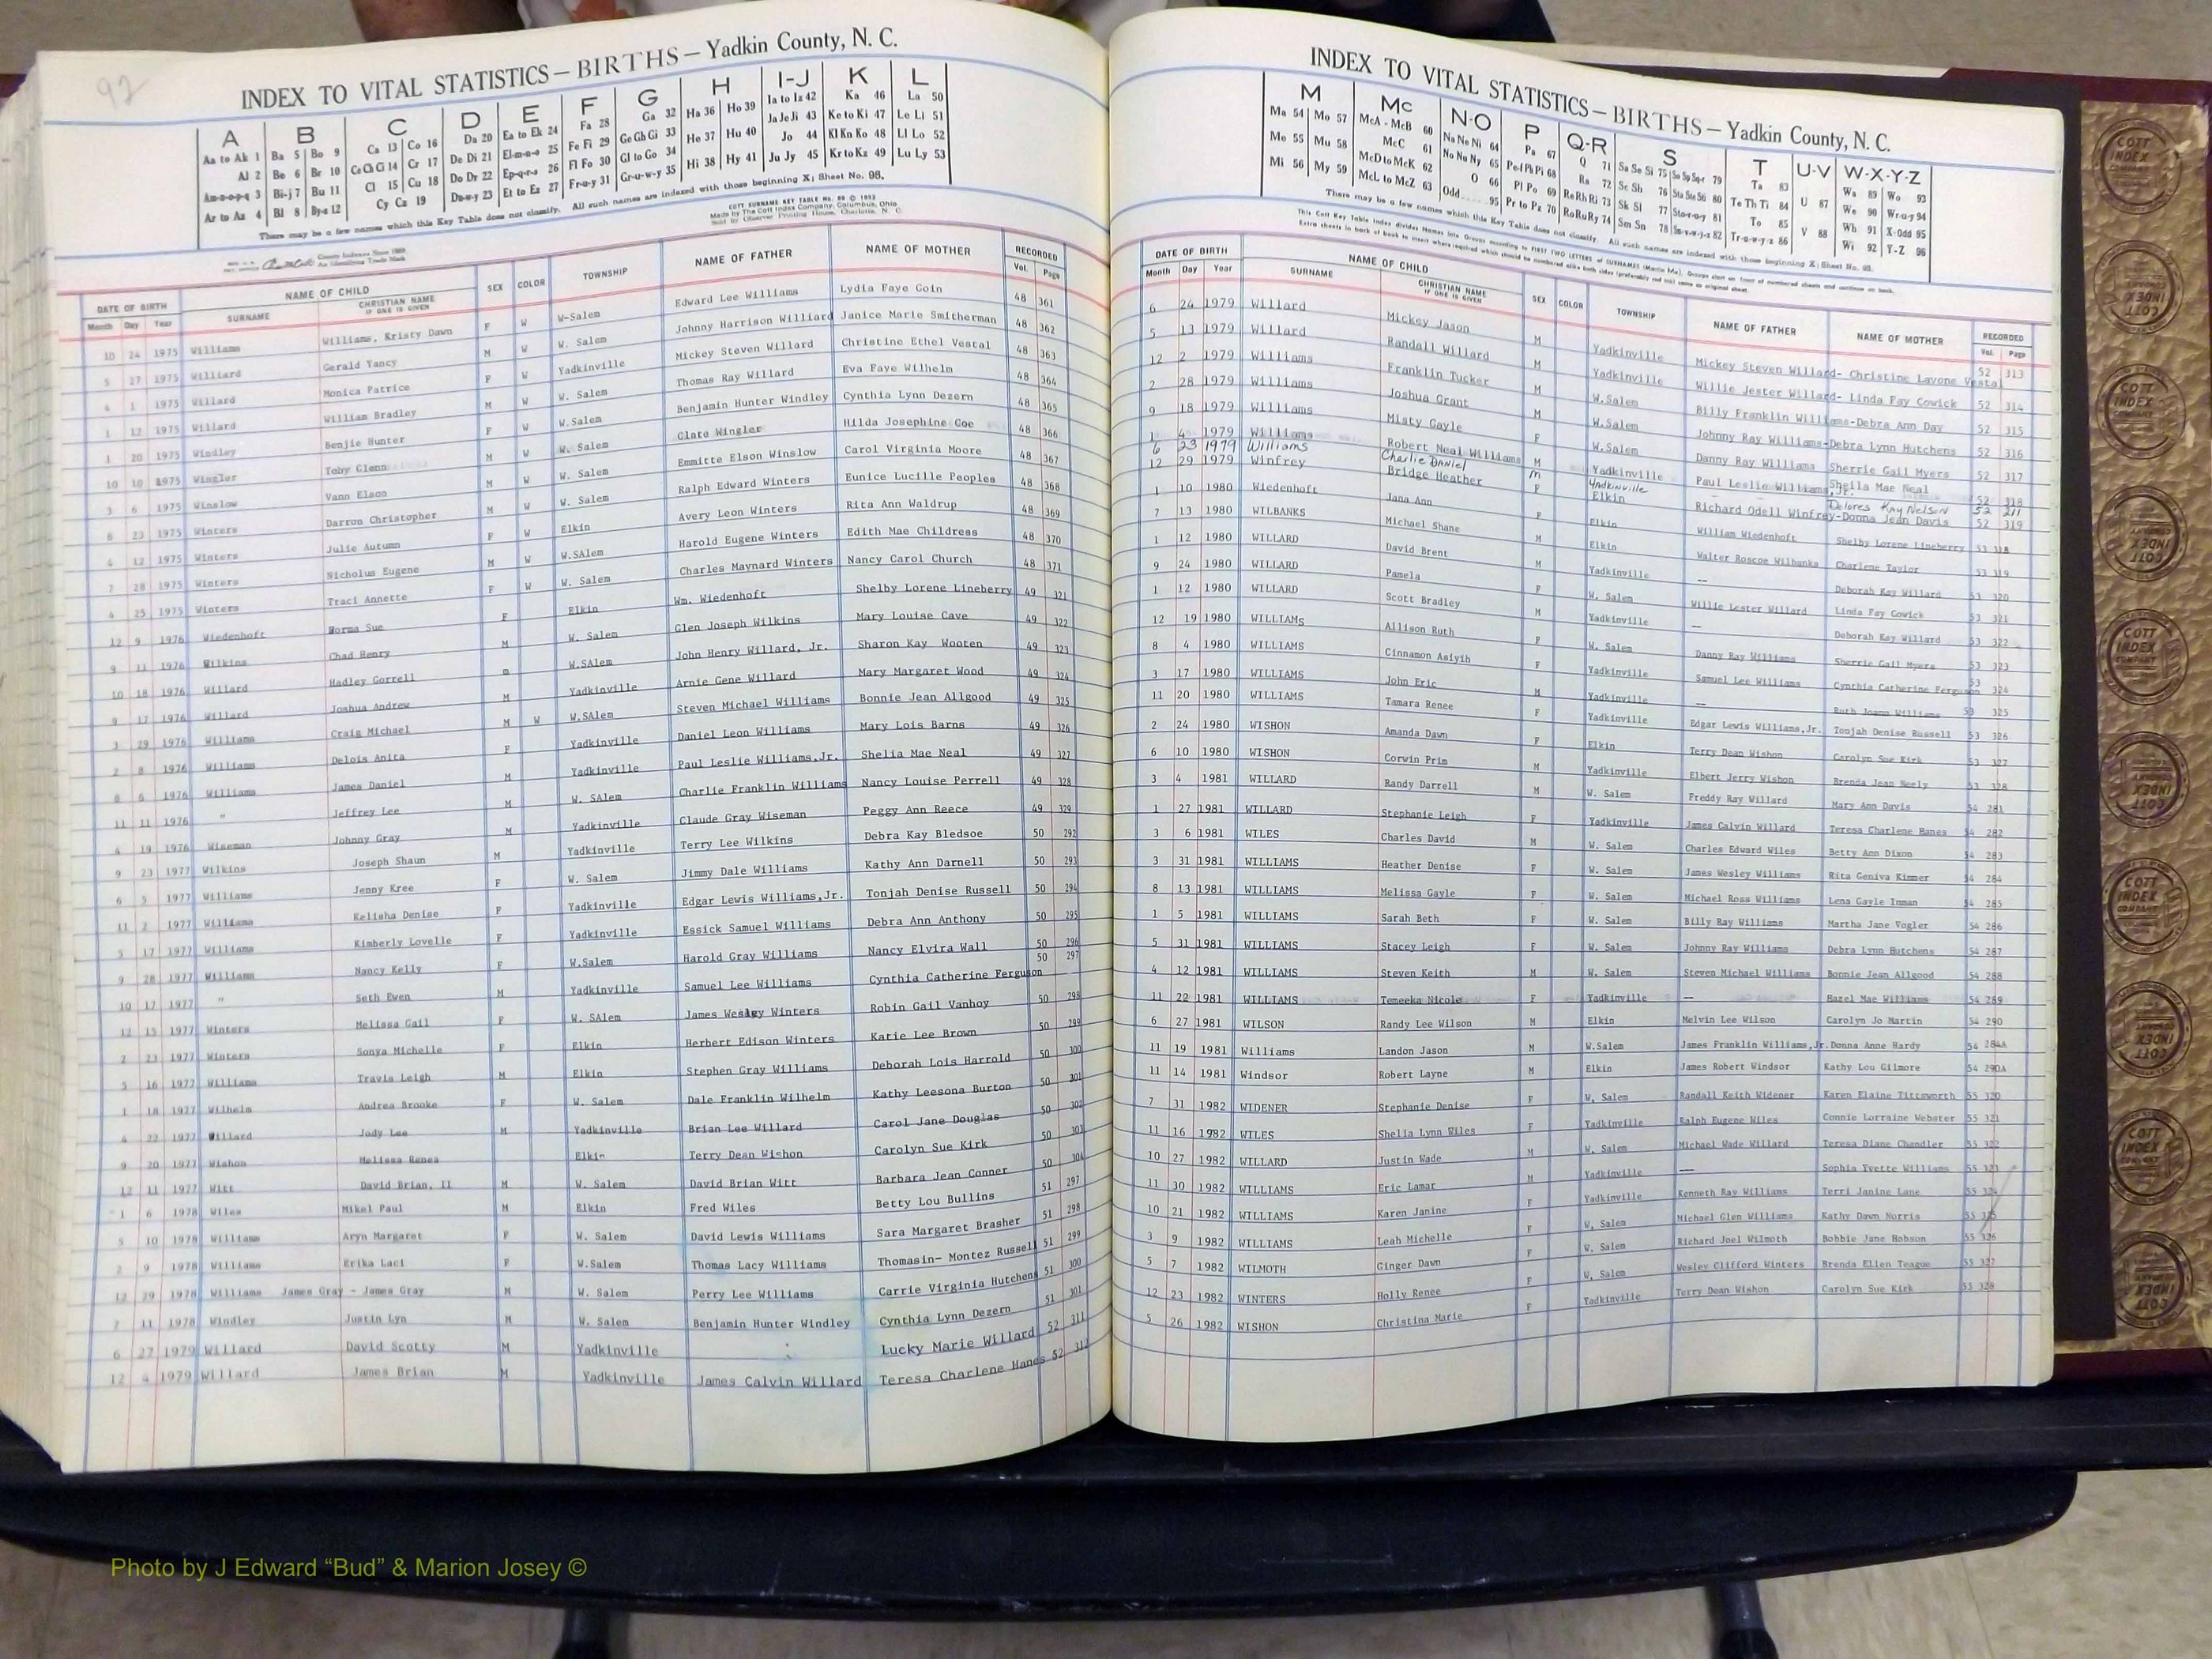 92
INDEX TO VITAL STATISTICS — BIRTHS — Yadkin County, N. C.
A B C D E F G H I-J K L
Aa to Ak 1 Ba 5 Bo 9 Ca 13 Co 16 Da 20 Ea to Ek 24 Fa 28 Ga 32 Ha 36 Ho 39 Ia to Iz 42 Ka 46 La 50
Al 2 Be 6 Br 10 Ce Ch Ci 14 Cr 17 De Di 21 El-m-n-o 25 Fe Fi 29 Ge Gh Gi 33 He 37 Hu 40 Ja Je Ji 43 Ke to Ki 47 Le Li 51
Am-n-o-p-q 3 Bi-j 7 Bu 11 Cl 15 Cu 18 Do Dr 22 Ep-q-r-s 26 Fl Fo 30 Gl to Go 34 Hi 38 Hy 41 Jo 44 Kl Kn Ko 48 Ll Lo 52
Ar to Az 4 Bl 8 By-z 12 Cy Cz 19 Du-w-y 23 Et to Ez 27 Fr-u-y 31 Gr-u-w-y 35 Ju Jy 45 Kr to Kz 49 Lu Ly 53
There may be a few names which this Key Table does not classify. All such names are indexed with those beginning X; Sheet No. 98.
COTT SURNAME KEY TABLE No. 98 © 1953
Made by The Cott Index Company, Columbus, Ohio
Sold by Observer Printing House, Charlotte, N. C.
DATE OF BIRTH NAME OF CHILD SEX COLOR TOWNSHIP NAME OF FATHER NAME OF MOTHER RECORDED
Month Day Year SURNAME CHRISTIAN NAME IF ONE IS GIVEN Vol. Page
10 24 1975 Williams Williams, Kristy Dawn F W W-Salem Edward Lee Williams Lydia Faye Goin 48 361
5 27 1975 Williard Gerald Yancy M W W. Salem Johnny Harrison Williard Janice Marie Smitherman 48 362
4 1 1975 Willard Monica Patrice F W Yadkinville Mickey Steven Willard Christine Ethel Vestal 48 363
1 12 1975 Willard William Bradley M W W. Salem Thomas Ray Willard Eva Faye Wilhelm 48 364
1 20 1975 Windley Benjie Hunter F W W.Salem Benjamin Hunter Windley Cynthia Lynn Dezern 48 365
10 10 1975 Wingler Toby Glenn M W W. Salem Clate Wingler Hilda Josephine Coe 48 366
3 6 1975 Winslow Vann Elson M W W. Salem Emmitte Elson Winslow Carol Virginia Moore 48 367
8 23 1975 Winters Darron Christopher M W W. Salem Ralph Edward Winters Eunice Lucille Peoples 48 368
4 12 1975 Winters Julie Autumn F W Elkin Avery Leon Winters Rita Ann Waldrup 48 369
7 28 1975 Winters Nicholus Eugene M W W.SAlem Harold Eugene Winters Edith Mae Childress 48 370
4 25 1975 Winters Traci Annette F W W. Salem Charles Maynard Winters Nancy Carol Church 48 371
12 9 1976 Wiedenhoft Norma Sue F Elkin Wm. Wiedenhoft Shelby Lorene Lineberry 49 321
9 11 1976 Wilkins Chad Henry M W. Salem Glen Joseph Wilkins Mary Louise Cave 49 322
10 18 1976 Willard Hadley Gorrell m W.SAlem John Henry Willard, Jr. Sharon Kay Wooten 49 323
9 17 1976 Willard Joshua Andrew M Yadkinville Arnie Gene Willard Mary Margaret Wood 49 324
3 29 1976 Williams Craig Michael M W W.SAlem Steven Michael Williams Bonnie Jean Allgood 49 325
2 8 1976 Williams Delois Anita F Yadkinville Daniel Leon Williams Mary Lois Barns 49 326
8 6 1976 Williams James Daniel M Yadkinville Paul Leslie Williams,Jr. Shelia Mae Neal 49 327
11 11 1976 " Jeffrey Lee M W. SAlem Charlie Franklin Williams Nancy Louise Perrell 49 328
4 19 1976 Wiseman Johnny Gray M Yadkinville Claude Gray Wiseman Peggy Ann Reece 49 329
9 23 1977 Wilkins Joseph Shaun M Yadkinville Terry Lee Wilkins Debra Kay Bledsoe 50 292
6 5 1977 Williams Jenny Kree F W. Salem Jimmy Dale Williams Kathy Ann Darnell 50 293
11 2 1977 Williams Kelisha Denise F Yadkinville Edgar Lewis Williams,Jr. Tonjah Denise Russell 50 294
5 17 1977 Williams Kimberly Lovelle F Yadkinville Essick Samuel Williams Debra Ann Anthony 50 295
9 28 1977 Williams Nancy Kelly F W.Salem Harold Gray Williams Nancy Elvira Wall 50 296
10 17 1977 " Seth Ewen M Yadkinville Samuel Lee Williams Cynthia Catherine Ferguson 50 297
12 15 1977 Winters Melissa Gail F W. SAlem James Wesley Winters Robin Gail Vanhoy 50 298
2 23 1977 Winters Sonya Michelle F Elkin Herbert Edison Winters Katie Lee Brown 50 299
5 16 1977 Williams Travis Leigh M Elkin Stephen Gray Williams Deborah Lois Harrold 50 300
1 18 1977 Wilhelm Andrea Brooke F W. Salem Dale Franklin Wilhelm Kathy Leesona Burton 50 301
4 22 1977 Willard Jody Lee M Yadkinville Brian Lee Willard Carol Jane Douglas 50 302
9 20 1977 Wishon Melissa Renea Elkin Terry Dean Wishon Carolyn Sue Kirk 50 303
12 11 1977 Witt David Brian, II M W. Salem David Brian Witt Barbara Jean Conner 50 304
1 6 1978 Wiles Mikel Paul M Elkin Fred Wiles Betty Lou Bullins 51 297
5 10 1978 Williams Aryn Margaret F W. Salem David Lewis Williams Sara Margaret Brasher 51 298
2 9 1978 Williams Erika Laci F W.Salem Thomas Lacy Williams Thomasin- Montez Russell 51 299
12 29 1978 Williams James Gray - James Gray M W. Salem Perry Lee Williams Carrie Virginia Hutchens 51 300
7 11 1978 Windley Justin Lyn M W. Salem Benjamin Hunter Windley Cynthia Lynn Dezern 51 301
6 27 1979 Willard David Scotty M Yadkinville Lucky Marie Willard 52 311
12 4 1979 Willard James Brian M Yadkinville James Calvin Willard Teresa Charlene Hanes 52 312
INDEX TO VITAL STATISTICS — BIRTHS — Yadkin County, N. C.
M Mc N-O P Q-R S T U-V W-X-Y-Z
Ma 54 Mo 57 McA - McB 60 Na Ne Ni 64 Pa 67 Q 71 Sa Se Si 75 So Sp Sq-r 79 Ta 83 Wa 89 Wo 93
Me 55 Mu 58 McC 61 No Nu Ny 65 Pe-f Ph Pi 68 Ra 72 Sc Sh 76 Sta Ste Sti 80 Te Th Ti 84 U 87 We 90 Wr-u-y 94
Mi 56 My 59 McD to McK 62 O 66 Pl Po 69 Re Rh Ri 73 Sk Sl 77 Sto-r-u-y 81 To 85 V 88 Wh 91 X-Odd 95
McL to McZ 63 Odd 95 Pr to Pz 70 Ro Ru Ry 74 Sm Sn 78 Su-v-w-y-z 82 Tr-u-w-y-z 86 Wi 92 Y-Z 96
There may be a few names which this Key Table does not classify. All such names are indexed with those beginning X; Sheet No. 98.
DATE OF BIRTH NAME OF CHILD SEX COLOR TOWNSHIP NAME OF FATHER NAME OF MOTHER RECORDED
Month Day Year SURNAME CHRISTIAN NAME IF ONE IS GIVEN Vol. Page
6 24 1979 Willard Mickey Jason M Yadkinville Mickey Steven Willard- Christine Lavone Vestal 52 313
5 13 1979 Willard Randall Willard M Yadkinville Willie Jester Willard- Linda Fay Cowick 52 314
12 2 1979 Williams Franklin Tucker M W.Salem Billy Franklin Williams-Debra Ann Day 52 315
2 28 1979 Williams Joshua Grant M W.Salem Johnny Ray Williams-Debra Lynn Hutchens 52 316
9 18 1979 Williams Misty Gayle F W.Salem Danny Ray Williams Sherrie Gail Myers 52 317
1 4 1979 Williams Robert Neal Williams M Yadkinville Paul Leslie Williams,Jr. Sheila Mae Neal 52 318
6 23 1979 Williams Charlie Daniel m Yadkinville Delores Kay Nelson 52 211
12 29 1979 Winfrey Bridge Heather F Elkin Richard Odell Winfrey-Donna Jean Davis 52 319
1 10 1980 Wiedenhoft Jana Ann F Elkin William Wiedenhoft Shelby Lorene Lineberry 53 318
7 13 1980 WILBANKS Michael Shane M Elkin Walter Roscoe Wilbanks Charlene Taylor 53 319
1 12 1980 WILLARD David Brent M Yadkinville -- Deborah Kay Willard 53 320
9 24 1980 WILLARD Pamela F W. Salem Willie Lester Willard Linda Fay Cowick 53 321
1 12 1980 WILLARD Scott Bradley M Yadkinville — Deborah Kay Willard 53 322
12 19 1980 WILLIAMS Allison Ruth F W. Salem Danny Ray Williams Sherrie Gail Myers 53 323
8 4 1980 WILLIAMS Cinnamon Asiyih F Yadkinville Samuel Lee Williams Cynthia Catherine Ferguson 53 324
3 17 1980 WILLIAMS John Eric M Yadkinville -- Ruth Joann Williams 53 325
11 20 1980 WILLIAMS Tamara Renee F Yadkinville Edgar Lewis Williams,Jr. Tonjah Denise Russell 53 326
2 24 1980 WISHON Amanda Dawn F Elkin Terry Dean Wishon Carolyn Sue Kirk 53 327
6 10 1980 WISHON Corwin Prim M Yadkinville Elbert Jerry Wishon Brenda Jean Neely 53 328
3 4 1981 WILLARD Randy Darrell M W. Salem Freddy Ray Willard Mary Ann Davis 54 281
1 27 1981 WILLARD Stephanie Leigh F Yadkinville James Calvin Willard Teresa Charlene Hanes 54 282
3 6 1981 WILES Charles David M W. Salem Charles Edward Wiles Betty Ann Dixon 54 283
3 31 1981 WILLIAMS Heather Denise F W. Salem James Wesley Williams Rita Geniva Kimmer 54 284
8 13 1981 WILLIAMS Melissa Gayle F W. Salem Michael Ross Williams Lena Gayle Inman 54 285
1 5 1981 WILLIAMS Sarah Beth F W. Salem Billy Ray Williams Martha Jane Vogler 54 286
5 31 1981 WILLIAMS Stacey Leigh F W. Salem Johnny Ray Williams Debra Lynn Hutchens 54 287
4 12 1981 WILLIAMS Steven Keith M W. Salem Steven Michael Williams Bonnie Jean Allgood 54 288
11 22 1981 WILLIAMS Temeeka Nicole F Yadkinville — Hazel Mae Williams 54 289
6 27 1981 WILSON Randy Lee Wilson M Elkin Melvin Lee Wilson Carolyn Jo Martin 54 290
11 19 1981 Williams Landon Jason M W.Salem James Franklin Williams,Jr. Donna Anne Hardy 54 284A
11 14 1981 Windsor Robert Layne M Elkin James Robert Windsor Kathy Lou Gilmore 54 290A
7 31 1982 WIDENER Stephanie Denise F W. Salem Randall Keith Widener Karen Elaine Tittsworth 55 320
11 16 1982 WILES Shelia Lynn Wiles F Yadkinville Ralph Eugene Wiles Connie Lorraine Webster 55 321
10 27 1982 WILLARD Justin Wade M W. Salem Michael Wade Willard Teresa Diane Chandler 55 322
11 30 1982 WILLIAMS Eric Lamar M Yadkinville --- Sophia Yvette Williams 55 323
10 21 1982 WILLIAMS Karen Janine F Yadkinville Kenneth Ray Williams Terri Janine Lane 55 324
3 9 1982 WILLIAMS Leah Michelle F W. Salem Michael Glen Williams Kathy Dawn Norris 55 325
5 7 1982 WILMOTH Ginger Dawn F W. Salem Richard Joel Wilmoth Bobbie Jane Hobson 55 326
12 23 1982 WINTERS Holly Renee F W. Salem Wesley Clifford Winters Brenda Ellen Teague 55 327
5 26 1982 WISHON Christina Marie F Yadkinville Terry Dean Wishon Carolyn Sue Kirk 55 328
COTT INDEX COMPANY
Photo by J Edward “Bud” & Marion Josey ©